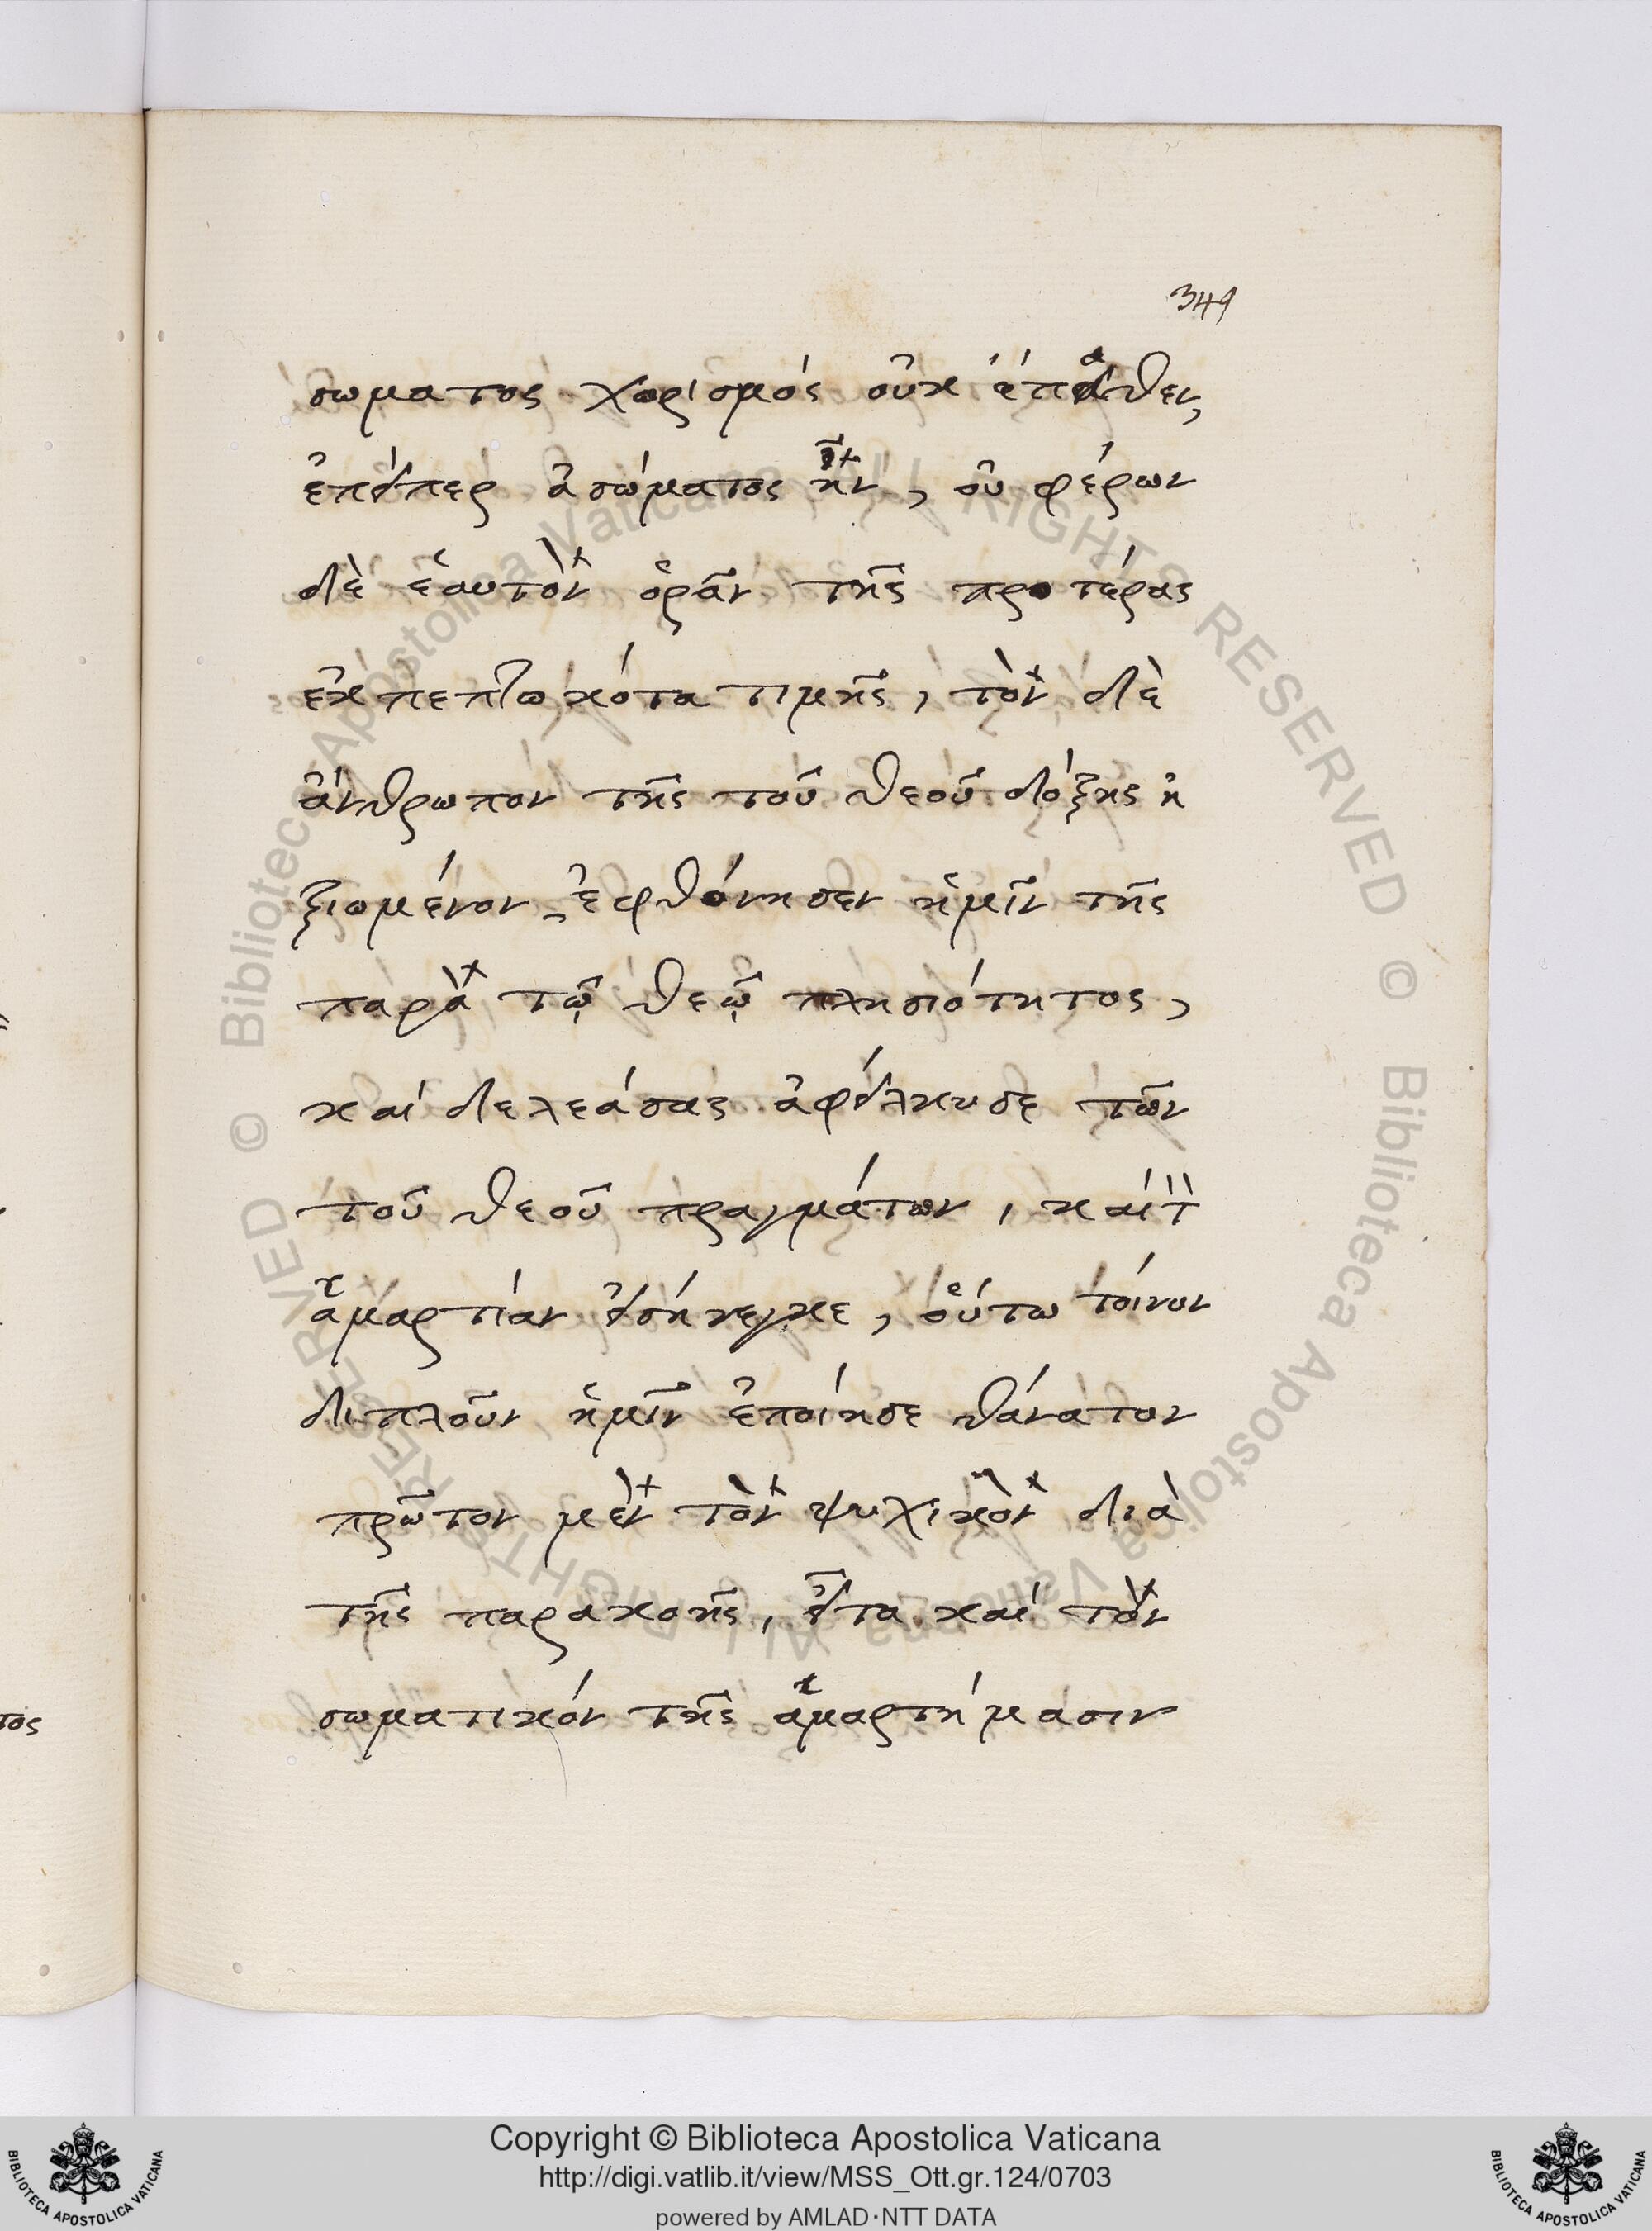 349
σωματος χωρισμός οὐκ ἔπαθεν,
ἐπείπερ ἀσώματος ἦν, οὐ φέρων
δὲ ἑαυτὸν ὁρᾶν τῆς προτέρας
ἐκπεπτωκότα τιμῆς, τὸν δὲ
ἄνθρωπον τῆς τοῦ θεοῦ δόξης ἠ
ξιομένον, ἐφθόνησεν ἡμῖν τῆς
παρὰ τῷ θεῷ πλησιότητος,
καί δελεάσας ἀφείλκυσε τῶν
τοῦ θεοῦ πραγμάτων, καί τ̀
ἁμαρτίαν εἰσήνεγκε, οὕτω τοίνυν
διπλοῦν ἡμῖν ἐποίησε θάνατον
πρῶτον μὲν τὸν ψυχικὸν διὰ
τῆς παρακοῆς, εἶτα καί τὸν
σωματικόν τῆς ἁμαρτήμασιν
τος
Copyright © Biblioteca Apostolica Vaticana
http://digi.vatlib.it/view/MSS_Ott.gr.124/0703
powered by AMLAD·NTT DATA
BIBLIOTECA APOSTOLICA VATICANA
BIBLIOTECA APOSTOLICA VATICANA
© Biblioteca Apostolica Vaticana ALL RIGHTS RESERVED © Biblioteca Apostolica Vaticana ALL RIGHTS RESERVED